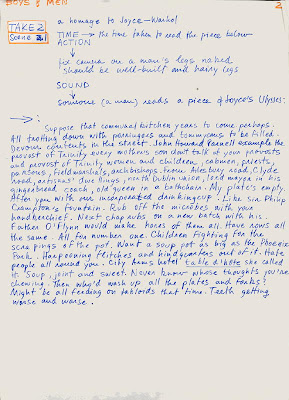 BOYS & MEN
2
TAKE 2
Scene 21
a homage to Joyce-Warhol
TIME → the time taken to read the piece below
ACTION
fix camera on a man's legs naked
should be well-built and hairy legs
SOUND
someone (a man) reads a piece of Joyce's Ulysses:
Suppose that communal kitchen years to come perhaps.
All trotting down with porringers and tommycans to be filled.
Devour contents in the street. John Howard Parnell example the
provost of Trinity every mother's son don't talk of your provosts
and provost of Trinity women and children, cabmen, priests,
parsons, field marshals, archbishops. From Ailesbury road, Clyde
road, artisans' dwellings, north Dublin union, lord mayor in his
gingerbread coach, old queen in a bathchair. My plate's empty.
After you with our incorporated drinkingcup. Like sir Philip
Crampton's fountain. Rub off the microbes with your
handkerchief. Next chap rubs on a new batch with his.
Father O'Flynn would make hares of them all. Have rows all
the same. All for number one. Children fighting for the
scrapings of the pot. Want a soup pot as big as the Phoenix
Park. Harpooning flitches and hindquarters out of it. Hate
people all round you. City Arms hotel table d'hôte she called
it. Soup, joint and sweet. Never know whose thoughts you're
chewing. Then who'd wash up all the plates and forks?
Might be all feeding on tabloids that time. Teeth getting
worse and worse.